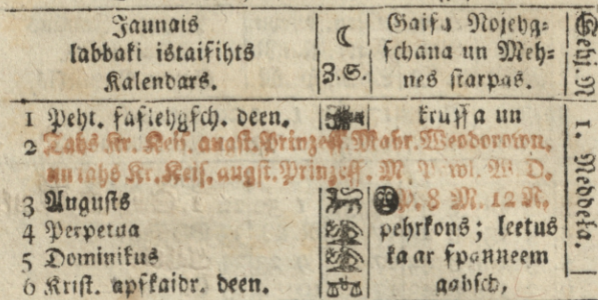 Jaunais
labbaki istaisihts
Kalendars.
☾
Z.S.
Gaisa Nojehg-
schana un Meh-
nes starpas.
1 Peht. saslehgsch. deen.
krussa un
2 Tahs Kr. Keis. augst. Prinzess. Mahr. Weodorown.
un tahs Kr. Keis. augst. Prinzess. M. Pawl. W. D.
3 Augusts
P. 8 M. 12 N.
4 Perpetua
pehrkons; leetus
5 Dominikus
ka ar spanneem
6 Krist. apskaidr. deen.
gahsch,
1. Neddeka.